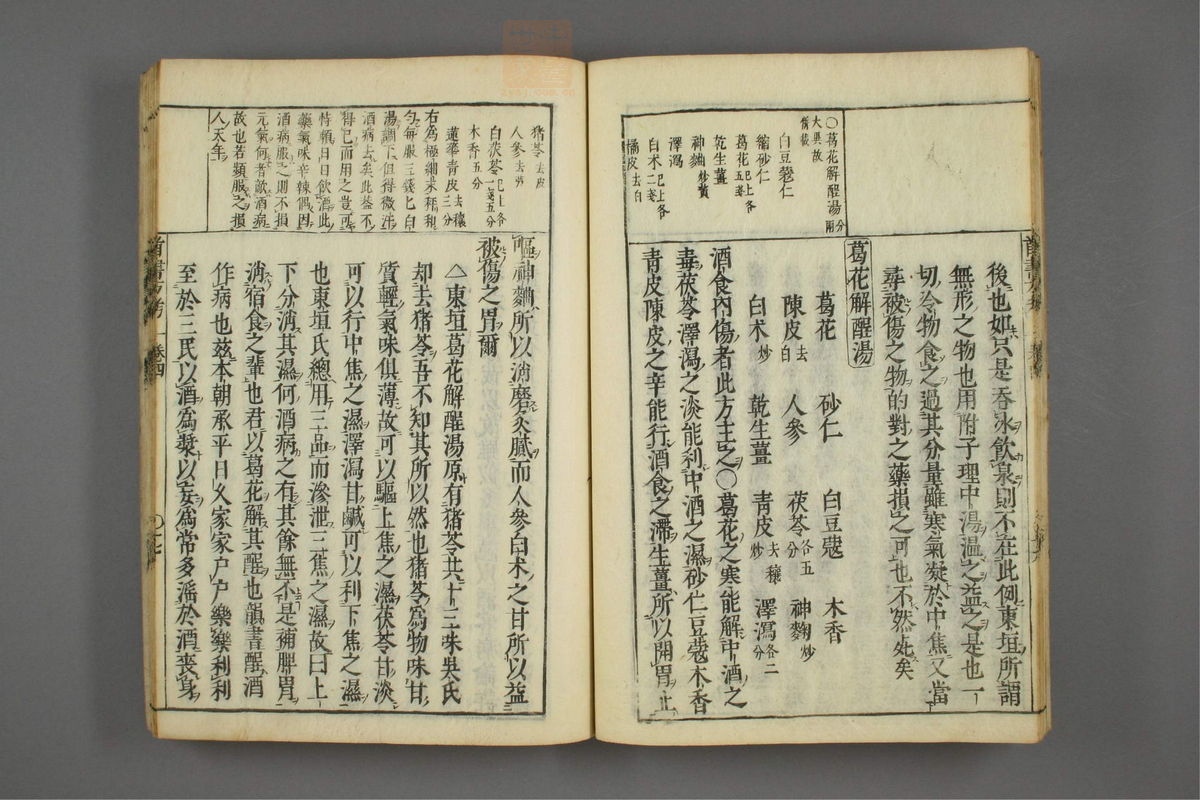 ○葛花解酲湯分兩
大異故
備載
白豆蔻仁
縮砂仁
葛花已上各五錢
乾生薑
神麯炒黃
澤瀉
白术已上各二錢
橘皮去白
後也如只是吞冰飲泉則不在此例東垣所謂
無形之物也用附子理中湯溫之益之是也一
切冷物食之過其分量雖寒氣凝於中焦又當
尋被傷之物的對之藥損之可也不然死矣
葛花解酲湯
葛花 砂仁 白豆蔻 木香
陳皮去白 人參 茯苓各五分 神麴炒
白术炒 乾生薑 青皮去穰炒 澤瀉各二分
酒食內傷者此方主之○葛花之寒能解中酒之
毒茯苓澤瀉之淡能利中酒之濕砂仁豆蔻木香
青皮陳皮之辛能行酒食之滯生薑所以開胃止
猪苓去皮
人參去芦
白茯苓已上各一錢五分
木香五分
蓮華青皮去穰三分
右為極細末秤和
勻每服三錢匕白
湯調下但得微汗
酒病去矣此葢不
得已而用之豈可
恃賴日日飲酒此
藥氣味辛辣偶因
酒病服之則不損
元氣何者敵酒病
故也若頻服之損
人天年
嘔神麯所以消磨炙膩而人參白术之甘所以益
被傷之胃爾
△東垣葛花解酲湯原有猪苓共十三味吳氏
却去猪苓吾不知其所以然也猪苓為物味甘
質輕氣味俱薄故可以驅上焦之濕茯苓甘淡
可以行中焦之濕澤瀉甘鹹可以利下焦之濕
也東垣氏總用三品而滲泄三焦之濕故曰上
下分消其濕何酒病之有其餘無不是補脾胃
消宿食之輩也君以葛花解其酲也韻書酲酒
作病也茲本朝承平日久家家户户樂樂利利
至於三民以酒為漿以妄為常多滛於酒喪身